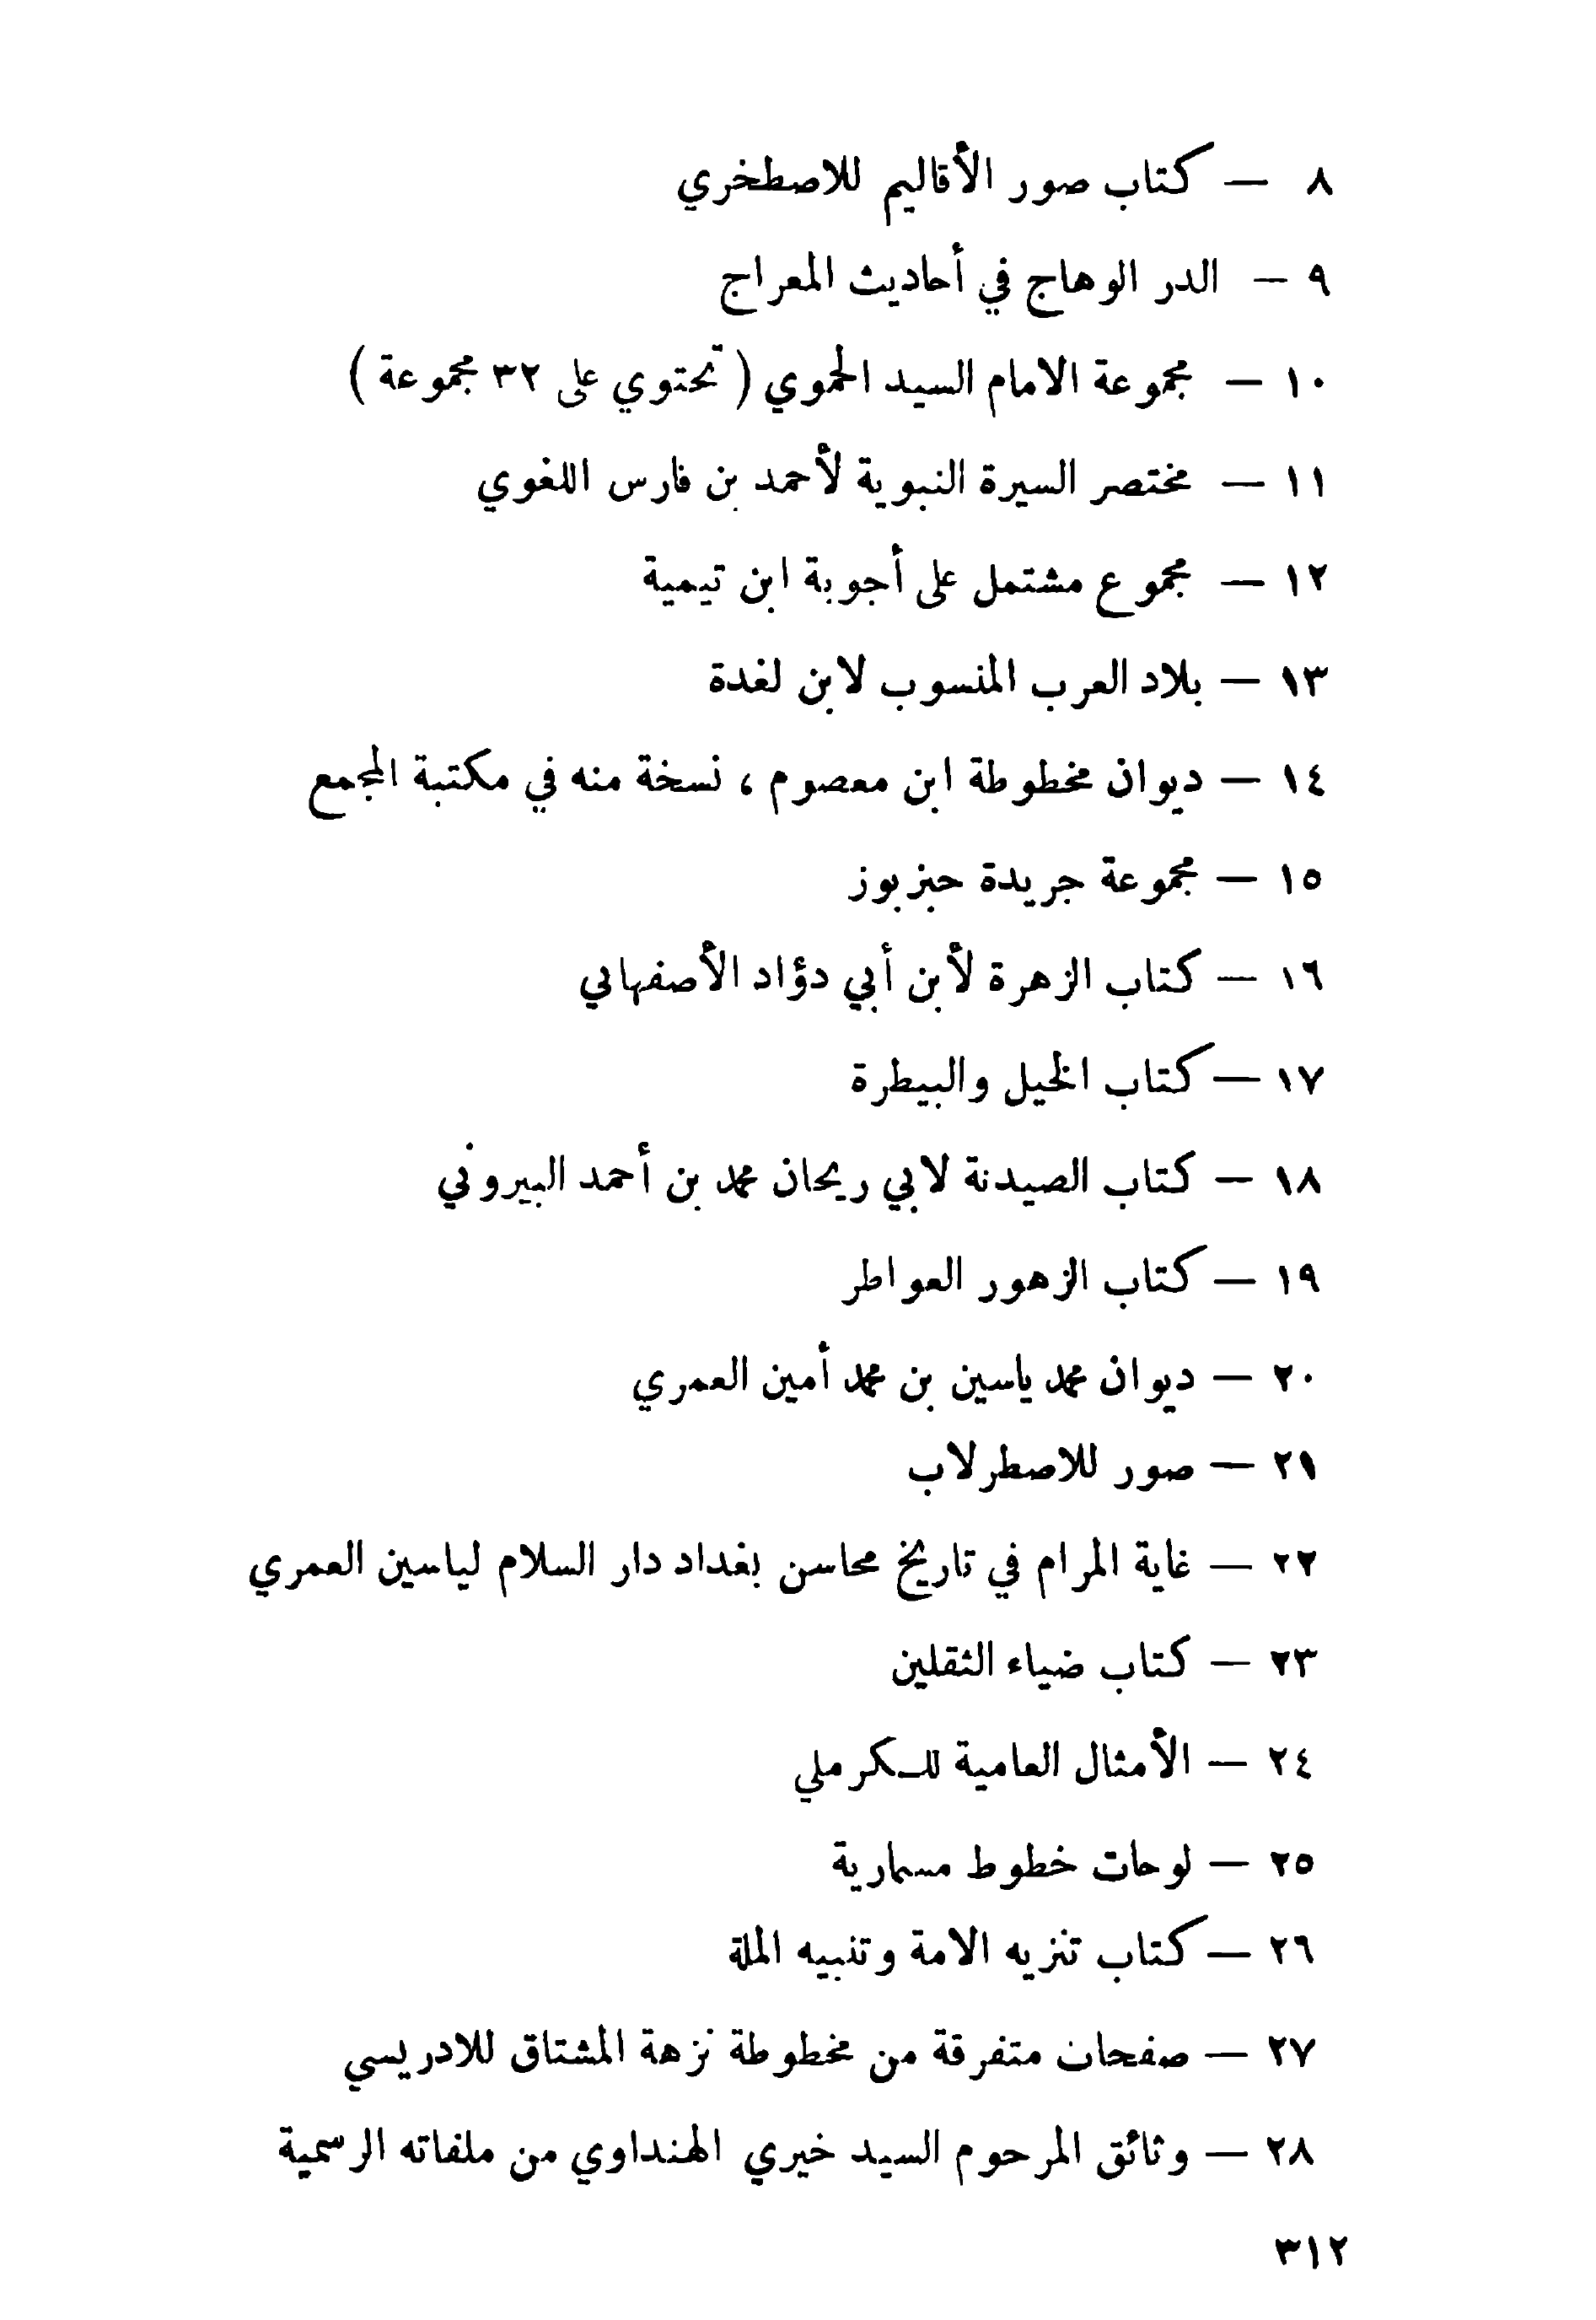 ٨ — كتاب صور الأقاليم للاصطخري
٩ — الدر الوهاج في أحاديث المعراج
١٠ — مجموعة الامام السيد الحموي ( تحتوي على ٣٢ مجموعة )
١١ — مختصر السيرة النبوية لأحمد بن فارس اللغوي
١٢ — مجموع مشتمل على أجوبة ابن تيمية
١٣ — بلاد العرب المنسوب لابن لغدة
١٤ — ديوان مخطوطة ابن معصوم ، نسخة منه في مكتبة المجمع
١٥ — مجموعة جريدة حبزبوز
١٦ — كتاب الزهرة لأبن أبي دؤاد الأصفهاني
١٧ — كتاب الخيل والبيطرة
١٨ — كتاب الصيدنة لابي ريحان محمد بن أحمد البيروني
١٩ — كتاب الزهور العواطر
٢٠ — ديوان محمد ياسين بن محمد أمين العمري
٢١ — صور للاصطرلاب
٢٢ — غاية المرام في تاريخ محاسن بغداد دار السلام لياسين العمري
٢٣ — كتاب ضياء الثقلين
٢٤ — الأمثال العامية للكرملي
٢٥ — لوحات خطوط مسمارية
٢٦ — كتاب تنزيه الامة وتنبيه الملة
٢٧ — صفحات متفرقة من مخطوطة نزهة المشتاق للادريسي
٢٨ — وثائق المرحوم السيد خيري الهنداوي من ملفاته الرسمية
٣١٢